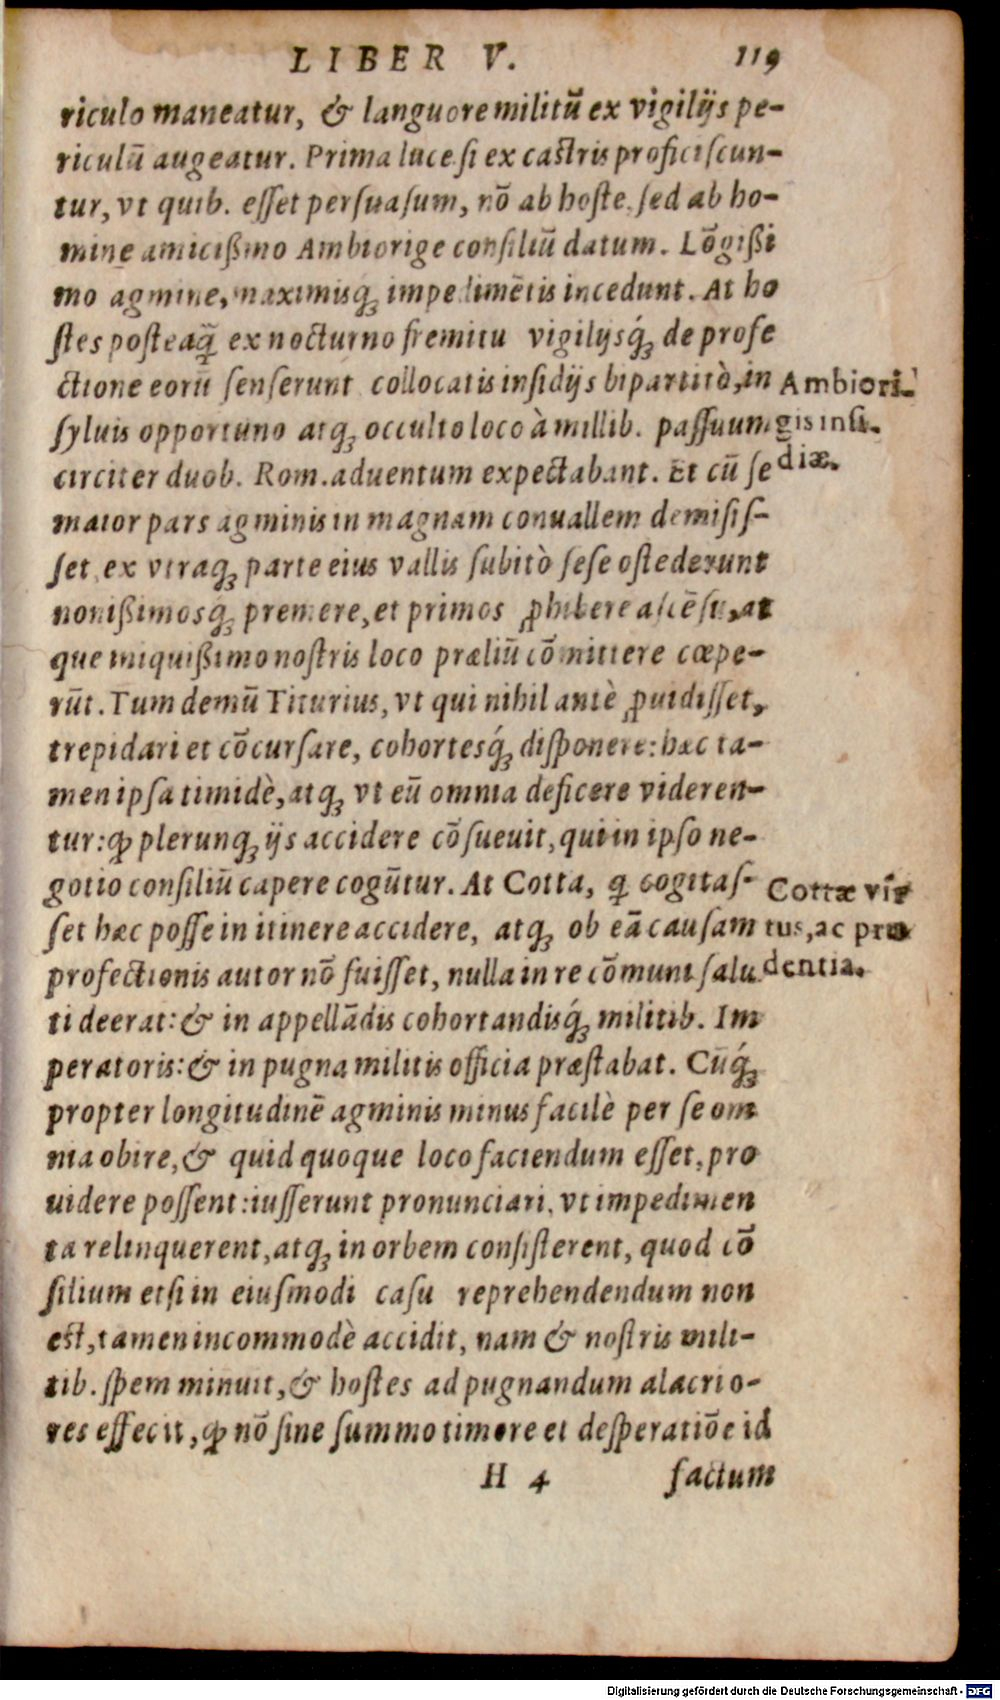 LIBER V. 119
riculo maneatur, & languore militū ex vigilijs pe-
riculū augeatur. Prima luce si ex castris proficiscun-
tur, vt quib. esset persuasum, nō ab hoste, sed ab ho-
mine amicißimo Ambiorige consiliū datum. Lōgißi
mo agmine, maximisq́ꝫ impedimētis incedunt. At ho
stes posteaꝗ̃ ex nocturno fremitu vigilijsq́ꝫ de profe
ctione eorū senserunt collocatis insidijs bipartitò, in
Ambiori-
syluis opportuno atqꝫ occulto loco à millib. passuum
gis insi-
circiter duob. Rom. aduentum expectabant. Et cū se
diæ.
maior pars agminis in magnam conuallem demisis-
set, ex vtraqꝫ parte eius vallis subitò sese ostēderunt
nouißimosqꝫ premere, et primos ꝓhibere ascēsu, at
que iniquißimo nostris loco præliū cōmittere cœpe-
rūt. Tum demū Titurius, vt qui nihil antè ꝓuidisset,
trepidari et cōcursare, cohortesq́ꝫ disponere: hæc ta-
men ipsa timidè, atqꝫ vt eū omnia deficere videren-
tur: ꝙ plerunqꝫ ijs accidere cōsueuit, qui in ipso ne-
gotio consiliū capere cogūtur. At Cotta, ꝗ cogitas-
Cottæ vir
set hæc posse in itinere accidere, atqꝫ ob eā causam
tus, ac pru
profectionis autor nō fuisset, nulla in re cōmuni salu
dentia.
ti deerat: & in appellādis cohortandisq́ꝫ militib. Im
peratoris: & in pugna militis officia præstabat. Cūq́ꝫ
propter longitudinē agminis minus facilè per se om
nia obire, & quid quoque loco faciendum esset, pro
uidere possent: iusserunt pronunciari, vt impedimen
ta relinquerent, atqꝫ in orbem consisterent, quod cō
silium etsi in eiusmodi casu reprehendendum non
est, tamen incommodè accidit, nam & nostris mili-
tib. spem minuit, & hostes ad pugnandum alacrio-
res effecit, ꝙ nō sine summo timore et desperatiōe id
H 4 factum
Digitalisierung gefördert durch die Deutsche Forschungsgemeinschaft - DFG